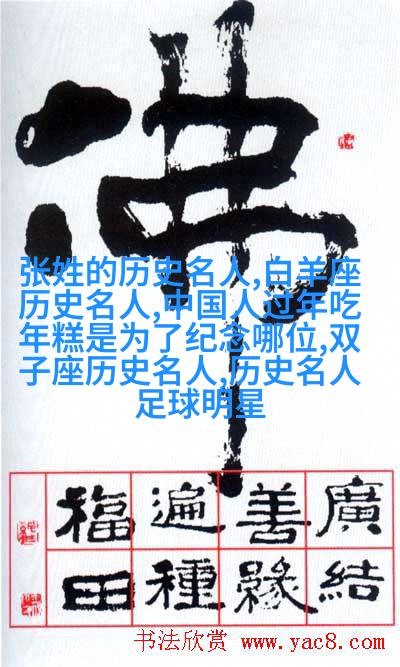 佛
张姓的历史名人,白羊座
历史名人,中国人过年吃
年糕是为了纪念哪位,双
子座历史名人,历史名人
足球明星
廣結
善緣
遍種
福田
书法欣赏 www.yac8.com